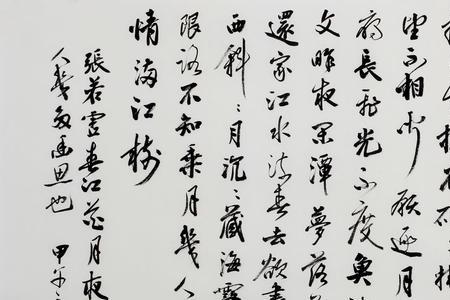 望不相聞願逐月
雁長飛光不度魚
文昨夜閑潭夢落
還家江水流春去欲盡
西斜〻月沉〻藏海霧
限路不知乘月幾人
情滿江樹
張若虛春江花月夜
思也 甲午